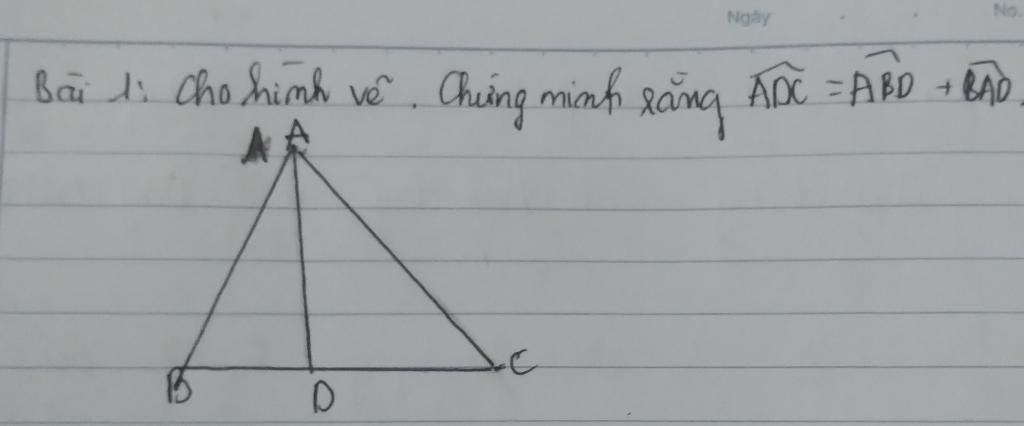 Ngày
No.
Bài 1: Cho hình vẽ. Chứng minh rằng ADC = ABD + BAD.
A A
B D C